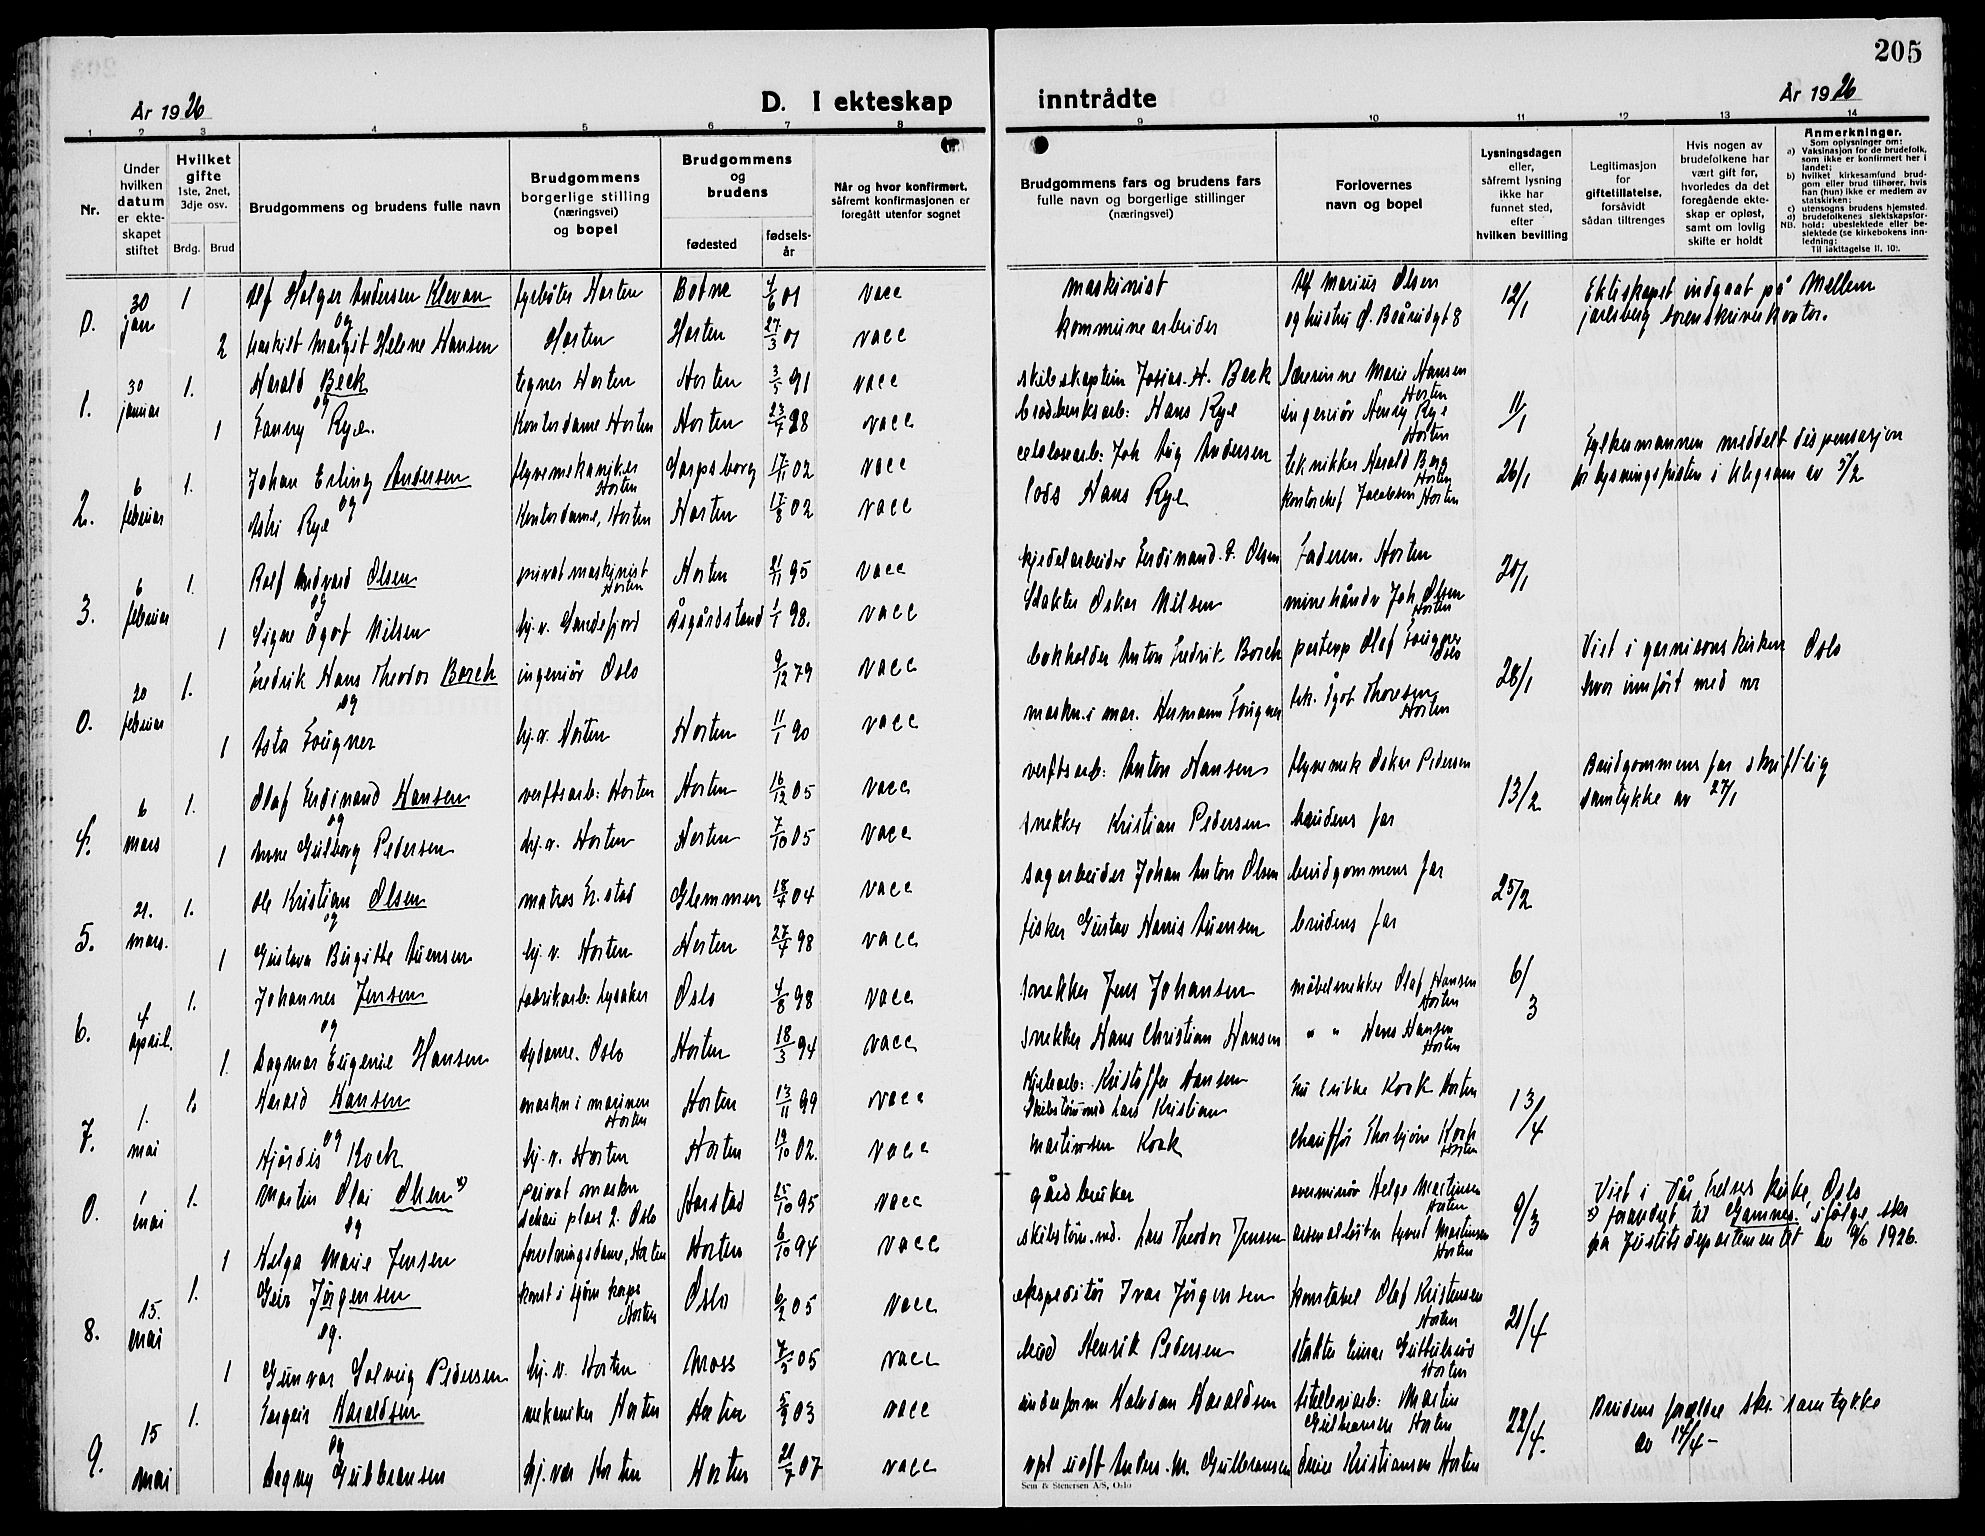 205
År 1926
D. I ekteskap
inntrådte
År 1926
1 2 3 4 5 6 7 8
9 10 11 12 13 14
Nr.
Under
hvilken
datum
er ekte-
skapet
stiftet
Hvilket
gifte
1ste, 2net,
3dje osv.
Brdg. Brud
Brudgommens og brudens fulle navn
Brudgommens
borgerlige stilling
(næringsvei)
og bopel
Brudgommens
og
brudens
fødested
fødsels-
år
Når og hvor konfirmert,
såfremt konfirmasjonen er
foregått utenfor sognet
Brudgommens fars og brudens fars
fulle navn og borgerlige stillinger
(næringsvei)
Forlovernes
navn og bopel
Lysningsdagen
eller,
såfremt lysning
ikke har
funnet sted,
efter
hvilken bevilling
Legitimasjon
for
giftetillatelse,
forsåvidt
sådan tiltrenges
Hvis nogen av
brudefolkene har
vært gift før,
hvorledes da det
foregående ekte-
skap er opløst,
samt om lovlig
skifte er holdt
Anmerkninger.
Som oplysninger om:
a) Vaksinasjon for de brudefolk,
som ikke er konfirmert her i
landet;
b) hvilket kirkesamfund brud-
gom eller brud tilhører, hvis
han (hun) ikke er medlem av
statskirken;
c) utensogns brudens hjemsted.
d) brudefolkenes slektskapsfor-
NB. hold: ubeslektede eller be-
slektede (se kirkebokens inn-
ledning:
Til iakttagelse II, 10).
0. 30 jan 1. Alf Holger Andersen Klevan fyrbøter Horten Botne 4/6 01 vacc maskinist Alf Marius Olsen 12/1 Ekteskapet indgaat på Mellem
og
2 fraskilt Margit Helene Hansen Horten Horten 27/3 01 vacc kommunearbeider og hustru Ø. Brårudgt 8 jarlsberg sorenskriverkontor.
1. 30 januar 1. Harald Beck tegner Horten Horten 3/5 91 vacc skibskaptein Josias. H. Beck lærerinne Marie Hansen Horten 11/1
og
1 Fanny Rye. Kontordame Horten Horten 23/7 28 vacc Hans Rye ingeniør Henry Rye Horten
2. 6 februar 1. Johan Erling Andersen flyvemekaniker Horten Sarpsborg 17/11 02 vacc Joh Aug Andersen teknikker Harald Berg Horten 26/1 Fylkesmannen meddelt dispensasjon
og
Astri Rye Kontordame, Horten Horten 17/8 02 vacc los Hans Rye kontorchef Jacobsen Horten for lysningsfristen i av 5/2
3. 6 februar 1. Rolf Andvard Olsen privat maskinist Horten Horten 21/11 95 vacc kjedelarbeider Ferdinand. A. Olsen Faderen. Horten 20/1
og
1 Signe Ågot Nilsen hj. v. Sandefjord Åsgårdstrand 1/1 98. vacc Slakter Oskar Nilsen minehåndv Joh Olsen Horten
0. 20 februar 1. Fredrik Hans Theodor Borch ingeniør Oslo 9/12 79 vacc bokholder Anton Fredrik Borch postexp Olaf Fougner Oslo 28/1 Viet i garnisonskirken Oslo
og
1 Asta Fougner hj. v. Horten Horten 11/1 90 vacc maskn. i mar. Hermann Fougner tek. Ågot Thoresen Horten hvor innført med nr
4. 6 mars 1. Olaf Ferdinand Hansen verftsarb: Horten Horten 16/12 05 vacc verftsarb: Anton Hansen flyvemek Oskar Pedersen 13/2 Brudgommens far skriftlig
og
1 Anne Gulborg Pedersen hj. v. Horten Horten 7/10 05 vacc snekker Kristian Pedersen brudens far samtykke av 27/1
5. 21. mars. 1. Ole Kristian Olsen matros Fr. stad Glemmen 18/7 04 vacc sagarbeider Johan Anton Olsen brudgommens far 25/2
og
1 Gustava Birgitte Auensen hj. v. Horten Horten 27/4 98 vacc fisker Gustav Hanis Auensen brudens far
6. 4. april. 1. Johannes Jensen fabrikarb: Lysaker Oslo 4/8 98 vacc snekker Jens Johansen møbelsnekker Olaf Hansen Horten 6/3
og
1. Dagmar Eugenie Hansen sydame. Oslo Horten 18/3 94 vacc snekker Hans Christian Hansen " " Hans Hansen Horten
7. 1. mai 1. Harald Hansen maskn i marinen Horten Horten 13/11 99 vacc Kristoffer Hansen Kook Horten 13/4
Skibstømmd Lars Kristian
og
Hjørdis Kook hj. v. Horten Horten 19/10 02. vacc Martinsen Kook chauffør Thorbjørn Kook Horten
0. 1 mai 1. Martin Olai Olsen x) privat maskn Schous plass 2. Oslo Harstad 25/10 95 vacc gårdbruker overminør Helge Martinsen Horten 9/3 Viet i Vår Frelsers Kirke, Oslo
og
x) forandret til Gamnes. ifølge skr
1 Helga Marie Jensen forretningsdame, Horten Horten 6/10 94 vacc skibstøm. md. Lars Theodor Jensen Martinsen Horten fra Justitsdepartementet av 9/6 1926.
8. 15. mai 1. Geir Jørgensen konst i sjøm korps Horten Oslo 6/2 05 vacc ekspeditør Ivar Jørgensen konstabel Olaf Kristensen Horten 21/4
og.
1 Gunvor Solveig Pedersen hj. v. Horten Moss 7/5 05 vacc bud Henrik Pedersen slakter Einar Guttulsrød Horten
9. 15 mai 1. Torgeir Haraldsen mekaniker Horten Horten 5/9 03 vacc underform Halvdan Haraldsen Martin Gulbransen Horten 22/4. Brudens forældre skr. samtykke
og
Dagny Gulbransen hj. vær Horten Horten 21/7 07 vacc Anders. M. Gulbransen Kristiansen Horten av 14/4 –
Sem & Stenersen A/S, Oslo